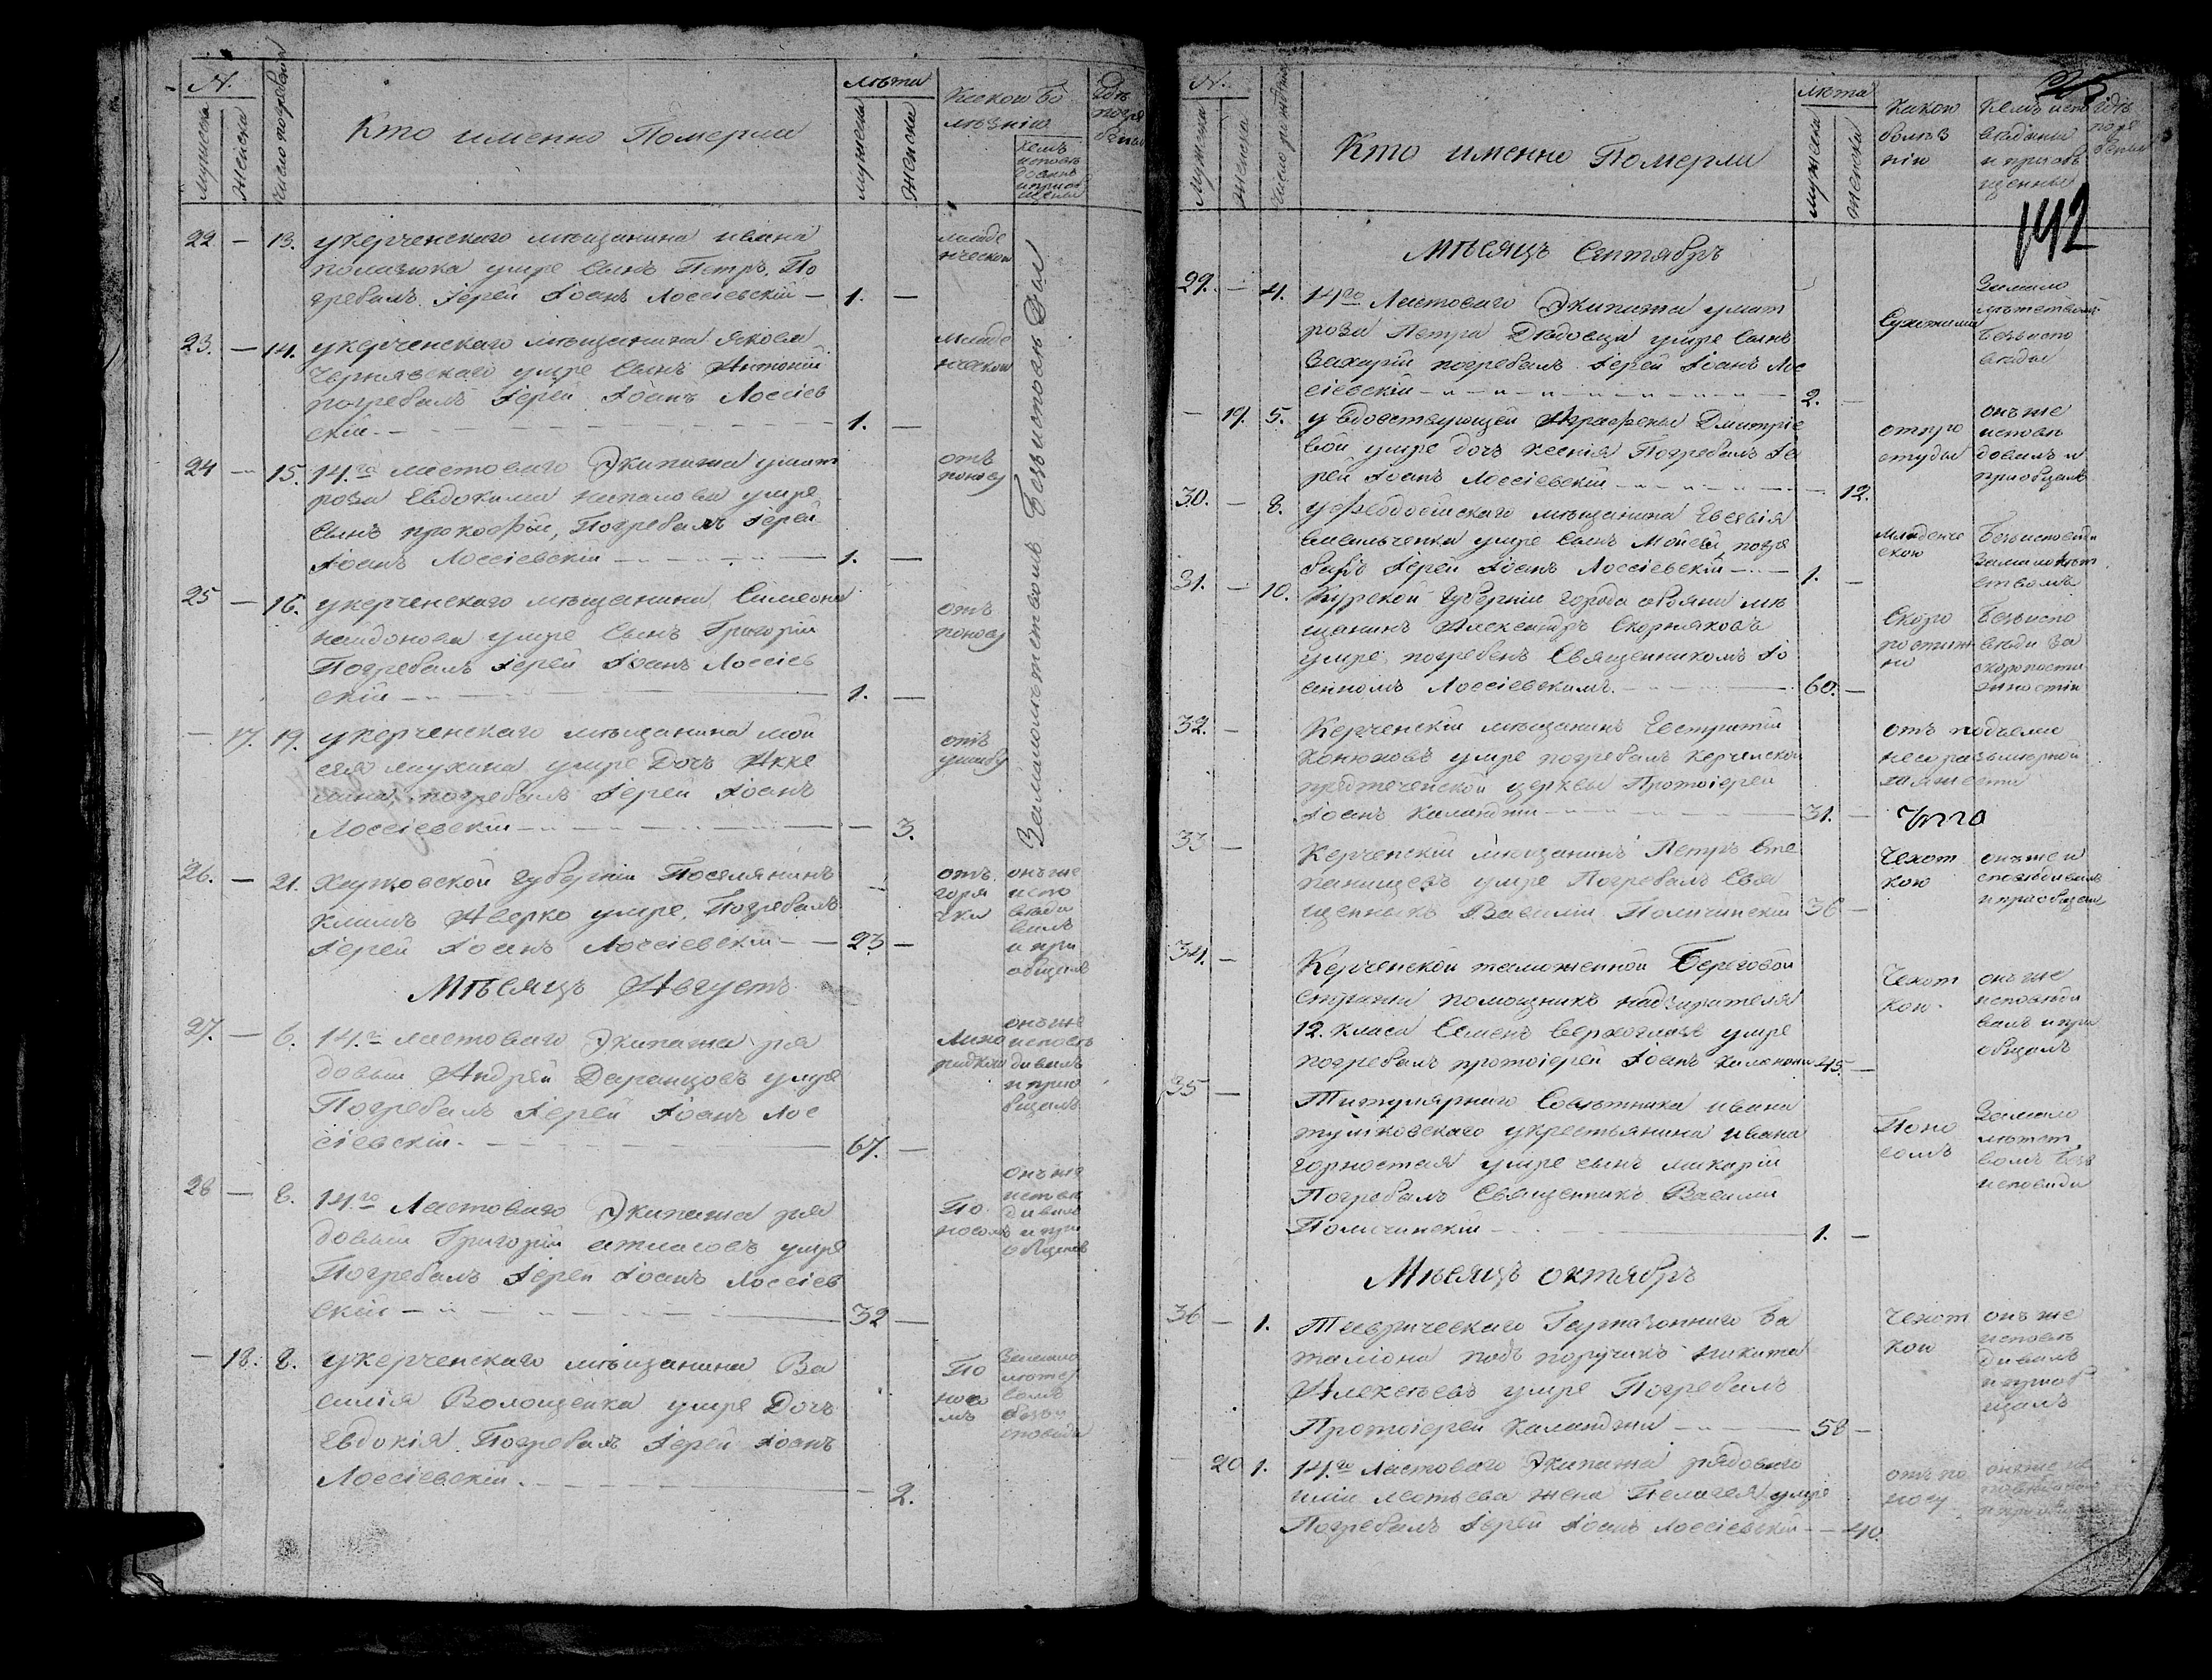 N.
мужеска
женска
число погребения
Кто именно Померли
лѣта
мужеска
женска
Какою бо
лѣзнію
кемъ
исповѣ
данъ
и приоб
щены
Гдѣ
погре
бены
22 — 13. укерченскаго мѣщанина ивана
умре Сынъ Петръ. По
гребалъ Іерей Іоанъ Лоссіевскій — 1. —
младе
нческою
23. — 14. укерченскаго мѣщанина Якова
Чернявскаго умре Сынъ Антоній
погребалъ Іерей Іоанъ Лоссіев
скій. — 1. —
младе
нческою
24 — 15. 14.го ластоваго Экипажа умат
роза Евдокима умре
Сынъ прокофій, Погребалъ Іерей
Іоанъ Лоссіевскій — 1. —
отъ
поносу
25 — 16. укерченскаго мѣщанина Симеона
найдонова умре Сынъ Григорій
Погребалъ Іерей Іоанъ Лоссіев
скій — 1. —
отъ
поносу
— 17. 19. укерченскаго мѣщанина мои
сея умре Дочъ Акке
погребалъ Іерей Іоанъ
Лоссіевскій — — 3.
отъ
ушибу
Замалолѣтствомъ Безъисповѣди
26. — 21. Харковской Губерніи Поселянинъ
климъ Аверко умре. Погребалъ
Іерей Іоанъ Лоссіевскій — 23 —
отъ
горя
чки
онъ же
испо
вѣди
валъ
и при
общалъ
Мѣсяцъ Августъ
27. — 6. 14.го ластоваго Экипажа ря
довый Андрей Даранцовъ умре
Погребалъ Іерей Іоанъ Лос
сіевскій. — 67. —
онъ же
исповѣ
дивалъ
и прио
бщалъ
28 — 8. 14.го Ластоваго Экипажа ря
довый Григорій атласовъ умре
Погребалъ Іерей Іоанъ Лоссіев
скій — 32 —
По
носомъ
онъ же
испов
дивалъ
и при
общалъ
— 18. 8. укерченскаго мѣщанина Ва
силія Волощенка умре Дочъ
Евдокія. Погребалъ Іерей Іоанъ
Лоссіевскій. — — 2.
По
носо
мъ
Замало
лѣтст
вомъ
безъи
сповѣди
N.
мужеска
женска
Кто именно Померли
лѣта
мужеска
женска
какою
болѣз
нію
кемъ испо
вѣданы
и приоб
щенны
гдѣ
погре
бены
142
Мѣсяцъ Сентябръ
29. — 4. 14го Ластоваго Экипажа умат
роза Петра Дѣдовца умре Сынъ
Захарій погребалъ Іерей Іоанъ Лос
сіевскій — 2. —
Замало
лѣтствомъ
безъиспо
вѣды
— 19. 5. у Вдовствующей Аграфены Дмитріе
вой умре дочъ Ксенія Погребалъ Іе
рей Іоанъ Лоссіевскій — — 12.
отпро
студы
онъ же
исповѣ
довалъ и
приобщалъ
30. — 8. уфеодосійскаго мѣщанина Евсевія
емельченка умре Сынъ Моисей, погре
балъ Іерей Іоанъ Лоссіевскій — 1. —
младенче
скою
Безъисповѣди
Замалолѣт
ствомъ
31. — 10. Курской Губерніи Города обояни мѣ
щанинъ Александръ Скорняковъ
умре, погребенъ Священникомъ Іо
анномъ Лоссіевскимъ. — 60. —
Скоро
постиж
но
Безъиспо
вѣди за
скоропости
жностію
32. — Керченскій мѣщанинъ Евстратій
Конюховъ умре погребалъ Керченской
предтеченской церквы Протоіерей
Іоанъ Каланджи — 31. —
отъ подъема
несоразмѣрной
тяжести
33 — Керченскій мѣщанинъ Петръ Сте
панищевъ умре Погребалъ Свя
щенникъ Василій Поличинскій 36 —
Чехот
кою
онъ же и
сповѣдивалъ
и приобщалъ
34. — Керченской таможенной Береговой
стражи помощникъ надзирателя
12. класа Семенъ Верхогладъ умре
погребалъ протоіерей Іоанъ Каланджи 45. —
Чехот
кою.
онъ же
исповѣди
валъ и при
общалъ
35 — Титулярнаго Совѣтника ивана
укрестьянина ивана
горностая умре сынъ макарій
Погребалъ Священникъ Василій
Поличинскій — 1. —
Поно
сомъ
Замало
лѣтст
вомъ без
исповѣди
Мѣсяцъ октябръ
36 — 1. Таврическаго Гарнизоннаго Ба
таліона подъ поручикъ никита
Алексѣевъ умре Погребалъ
Протоіерей Каланджи — 58 —
Чехот
кою
онъ же
исповѣ
дивалъ
и приоб
щалъ
— 20 1. 14.го Ластоваго Экипажа рядоваго
жена Пелагея умре
Погребалъ Іерей Іоанъ Лоссіевскій — — 40.
отъ по
носу